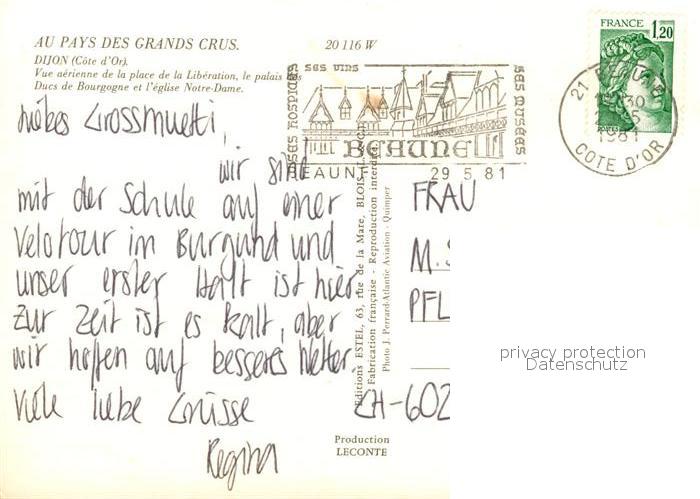 AU PAYS DES GRANDS CRUS.
20 116 W
DIJON (Côte d'Or).
Vue aérienne de la place de la Libération, le palais des
Ducs de Bourgogne et l'église Notre-Dame.
Liebes Grossmuetti,
wir sind
mit der Schule auf einer
Velotour im Burgund und
unser erster Halt ist hier.
Zur Zeit ist es kalt, aber
wir hoffen auf besseres Wetter.
Viele liebe Grüsse
Regina
SES HOSPICES
SES VINS
SES MUSÉES
BEAUNE
BEAUNE
29 5 81
FRANCE
1,20
21 BEAUNE
1981
COTE D'OR
Editions ESTEL, 63, rue de la Mare, BLOIS
Fabrication française - Reproduction interdite
Photo J. Perrard-Atlantic Aviation - Quimper
FRAU
M.
PFL
CH-602
Production
LECONTE
privacy protection
Datenschutz